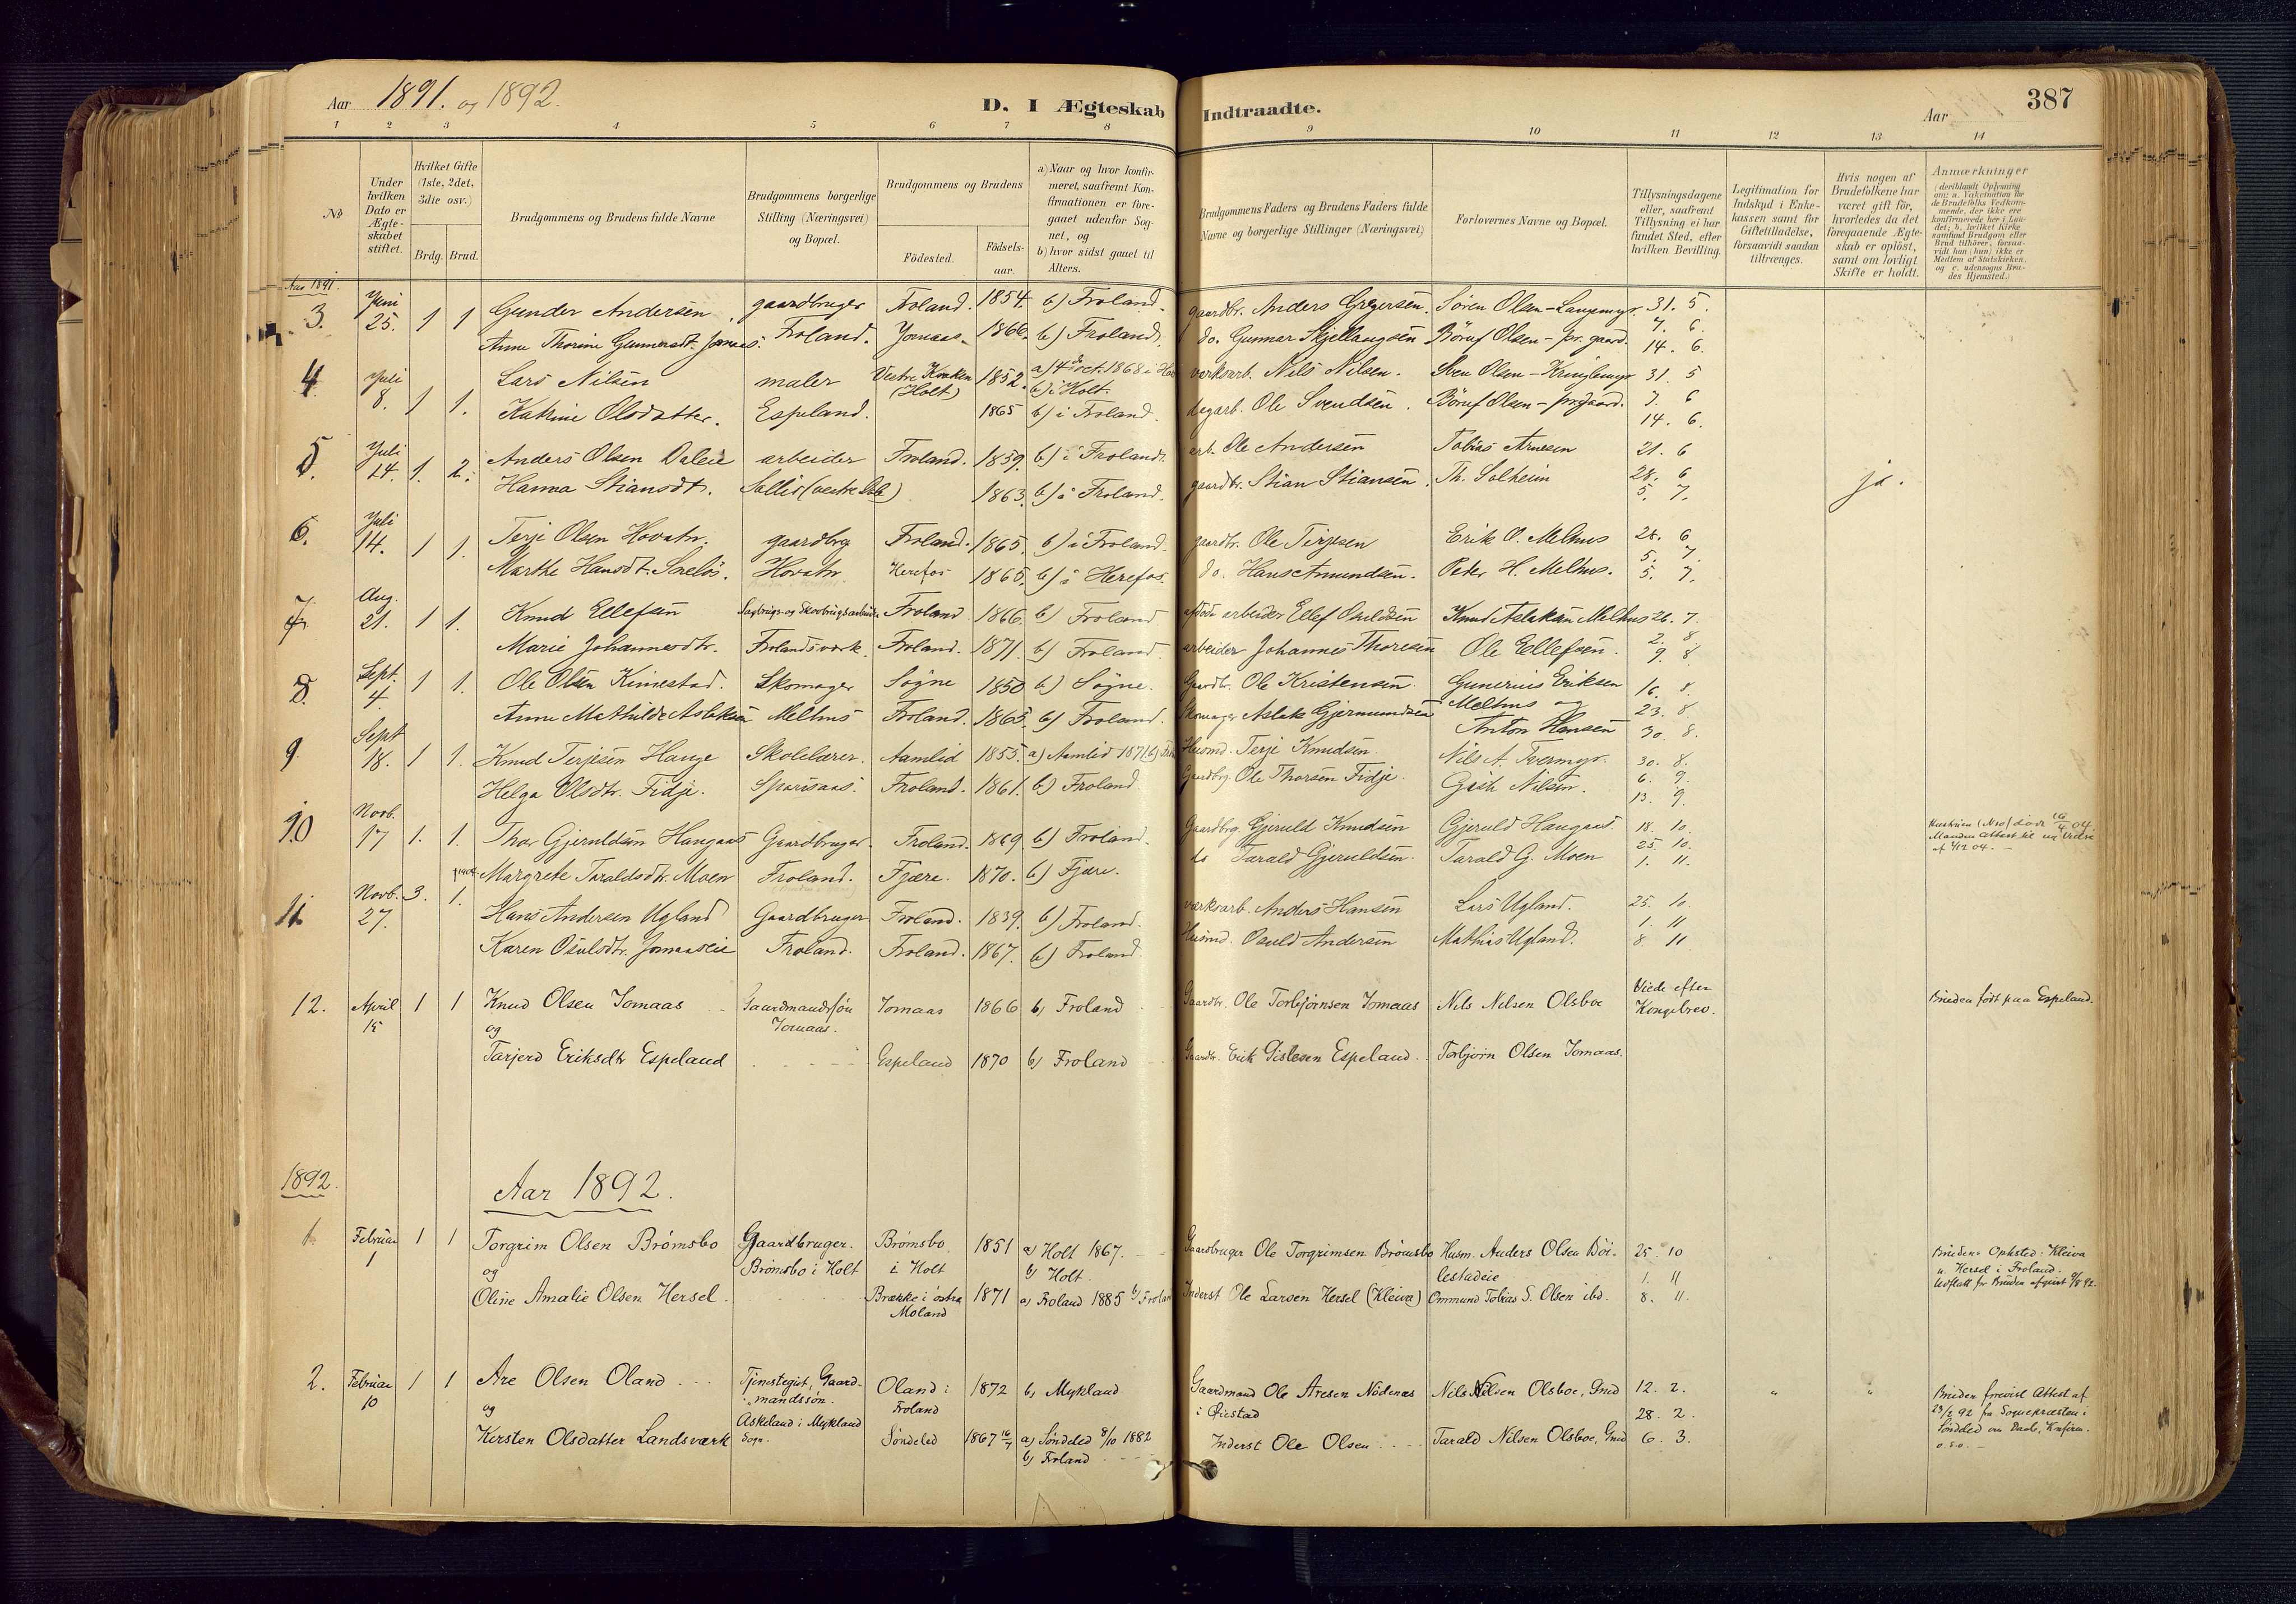 Aar 1891. og 1892.
D. I Ægteskab Indtraadte.
Aar
387
1 2 3 4 5 6 7 8 9 10 11 12 13 14
No
Under hvilken Dato er Ægteskabet stiftet.
Hvilket Gifte (1ste, 2det, 3die osv.)
Brdg. Brud.
Brudgommens og Brudens fulde Navne
Brudgommens borgerlige Stilling (Næringsvei) og Bopæl.
Brudgommens og Brudens
Födested.
Födsels-aar.
a) Naar og hvor konfirmeret, saafremt Konfirmationen er foregaaet udenfor Sognet, og
b) hvor sidst gaaet til Alters.
Brudgommens Faders og Brudens Faders fulde Navne og borgerlige Stillinger (Næringsvei)
Forlovernes Navne og Bopæl.
Tillysningsdagene eller, saafremt Tillysning ei har fundet Sted, efter hvilken Bevilling.
Legitimation for Indskud i Enkekassen samt for Giftetilladelse, forsaavidt saadan tiltrænges.
Hvis nogen af Brudefolkene har været gift för, hvorledes da det foregaaende Ægteskab er oplöst, samt om lovligt Skifte er holdt.
Anmærkninger
Aar 1891.
3. Juni 25. 1 1 Gunder Andersen gaardbruger Froland. 1854. b) Froland. gaardbr. Anders Gregersen. Sören Olsen - Langemyr. 31. 5.
Anne Thorine Gunnarsdt. Jomaas. Froland. Jomaas. 1866. b) Froland. do. Gunnar Skjellaugsen Böruf Olsen - pr. gaard. 7. 6.
14. 6.
4. Juli 8. 1 1. Lars Nilsen maler Vestre (Holt) 1852. a) 4de oct. 1868 i b) i Holt. værksarb. Nils Nilsen. Sven Olsen - Kringlemyr 31. 5
Katrine Olsdatter. Espeland. 1865 b) i Froland. dagarb. Ole Svendsen. Böruf Olsen - pr. gaard. 7. 6
14. 6.
5. Juli 14. 1. 2. Anders Olsen Daleie arbeider Froland. 1859. b) i Froland. arb. Ole Andersen Tobias Arnesen 21. 6
Hanna Stiansdt. (vestre ) 1863. b) i Froland. gaardbr. Stian Stiansen. Th. Solheim 28. 6
5. 7. ja.
6. Juli 14. 1 1. Terje Olsen Hovatn. gaardbrg Froland. 1865. b) i Froland. gaardbr. Ole Terjesen Erik O. Melhus 28. 6
Marthe Hansdt. Hovatn Herefos 1865. b) i Herefos. do. Hans Amundsen. Peder H. Melhus. 5. 7.
5. 7.
7. Aug. 21. 1 1. Knud Ellefsen Sagbrugs- og Skovbrugsarbeider Froland 1866. b) Froland afdöde arbeider Ellef Osuldsen Knud Aslaksen Melhus 26. 7.
Marie Johannesdtr. Frolandsværk Froland. 1871. b) Froland. arbeider Johannes Thoresen Ole Ellefsen. 2. 8.
9. 8.
8. Sept. 4. 1 1. Ole Olsen Kimestad. Skomager Søgne 1850 b) Søgne. Gaardbr. Ole Kristensen. Gunerius Eriksen Melhus og 16. 8.
Anne Mathilde Aslaksen Melhus Froland. 1865. b) Froland. Skomager Aslak Gjermundsen Anton Hansen 23. 8.
30. 8.
9. Sept 18. 1 1. Knud Terjesen Hauge Skolelærer. Aamlid 1855. a) Aamlid 1871 b) Husmd. Terje Knudsen. Nils A. Tvermyr. 30. 8.
Helga Olsdtr. Fidje. Froland. 1861. b) Froland Gaardbrg. Ole Thorsen Fidje. Nilsen. 6. 9.
13. 9.
10 Novb. 17 1. 1. Thor Gjeruldsen Haugaas Gaardbruger Froland. 1869. b) Froland. Gaardbrg. Gjeruld Knudsen Gjeruld Haugaas. 18. 10. Hustruen (N 10) död 04. Manden attest til
Margrete Taraldsdtr. Moen Froland. Fjære. 1870. b) Fjære. do Tarald Gjeruldsen. Tarald G. Moen 25. 10.
1. 11.
11. Novb. 27. 3. 1. Hans Andersen Ugland Gaardbruger Froland. 1839. b) Froland. værksarb. Anders Hansen Lars Ugland. 25. 10.
Karen Osulsdtr. Jomaaseie Froland. Froland. 1867. b) Froland. Husmd. Osuld Andersen Mathias Ugland. 1. 11
8. 11
12. April 15 1 1 Knud Olsen Jomaas Gaardmandssön Jomaas. Jomaas 1866 b) Froland Gaardbr. Ole Torbjørnsen Jomaas Nils Nilsen Olsboe Viede efter Kongebrev. Bruden født paa Espeland.
og
Tarjerd Eriksdtr Espeland Espeland 1870 b) Froland Gaardbr. Erik Gislesen Espeland. Torbjørn Olsen Jomaas.
1892. Aar 1892.
1. Februar 1 1 1 Torgrim Olsen Brömsbo Gaardbruger. Brömsbo i Holt Brömsbo i Holt 1851 a) Holt 1867. b) Holt. Gaardbruger Ole Torgrimsen Brömsbo Husm. Anders Olsen Böilestadeie 25. 10 Brudens Opholdsted: Kleiva u. Hersel i Froland.
og 1. 11
Oline Amalie Olsen Hersel. Brække i östre Moland 1871 a) Froland 1885 b) Froland Inderst Ole Larsen Hersel (Kleiva) Ommund Tobias S. Olsen ibd. 8. 11.
2. Februar 10 1 1 Are Olsen Oland Tjenestegut, Gaardmandssön. Oland i Froland 1872 b) Mykland Gaardmand Ole Aresen Nödenæs i Øiestad Nils Nilsen Olsboe, Gmd 12. 2. " " Bruden frevist Attest af 23/2 92 fra Sognepræsten i Söndeled om Daab, Konfirm. o.s.v.
og Askeland i Mykland Sogn. 28. 2.
Kirsten Olsdatter Landsværk Söndeled 1867 16/7 a) Söndeled 8/10 1882 b) Froland Inderst Ole Olsen Tarald Nilsen Olsboe, Gmd 6. 3.